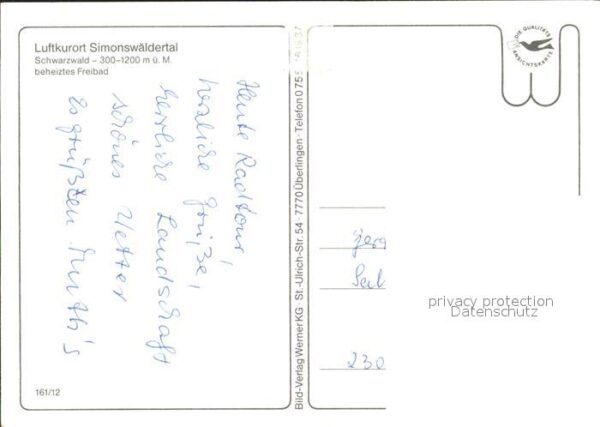 Luftkurort Simonswäldertal
Schwarzwald – 300–1200 m ü. M.
beheiztes Freibad
Heute Radtour,
herrliche Landschaft
schönes Wetter
Es grüßten
161/12
Bild-Verlag Werner KG · St.-Ulrich-Str. 54 · 7770 Überlingen · Telefon 0 75 5
DIE QUALITÄTS
ANSICHTSKARTE
230
privacy protection
Datenschutz